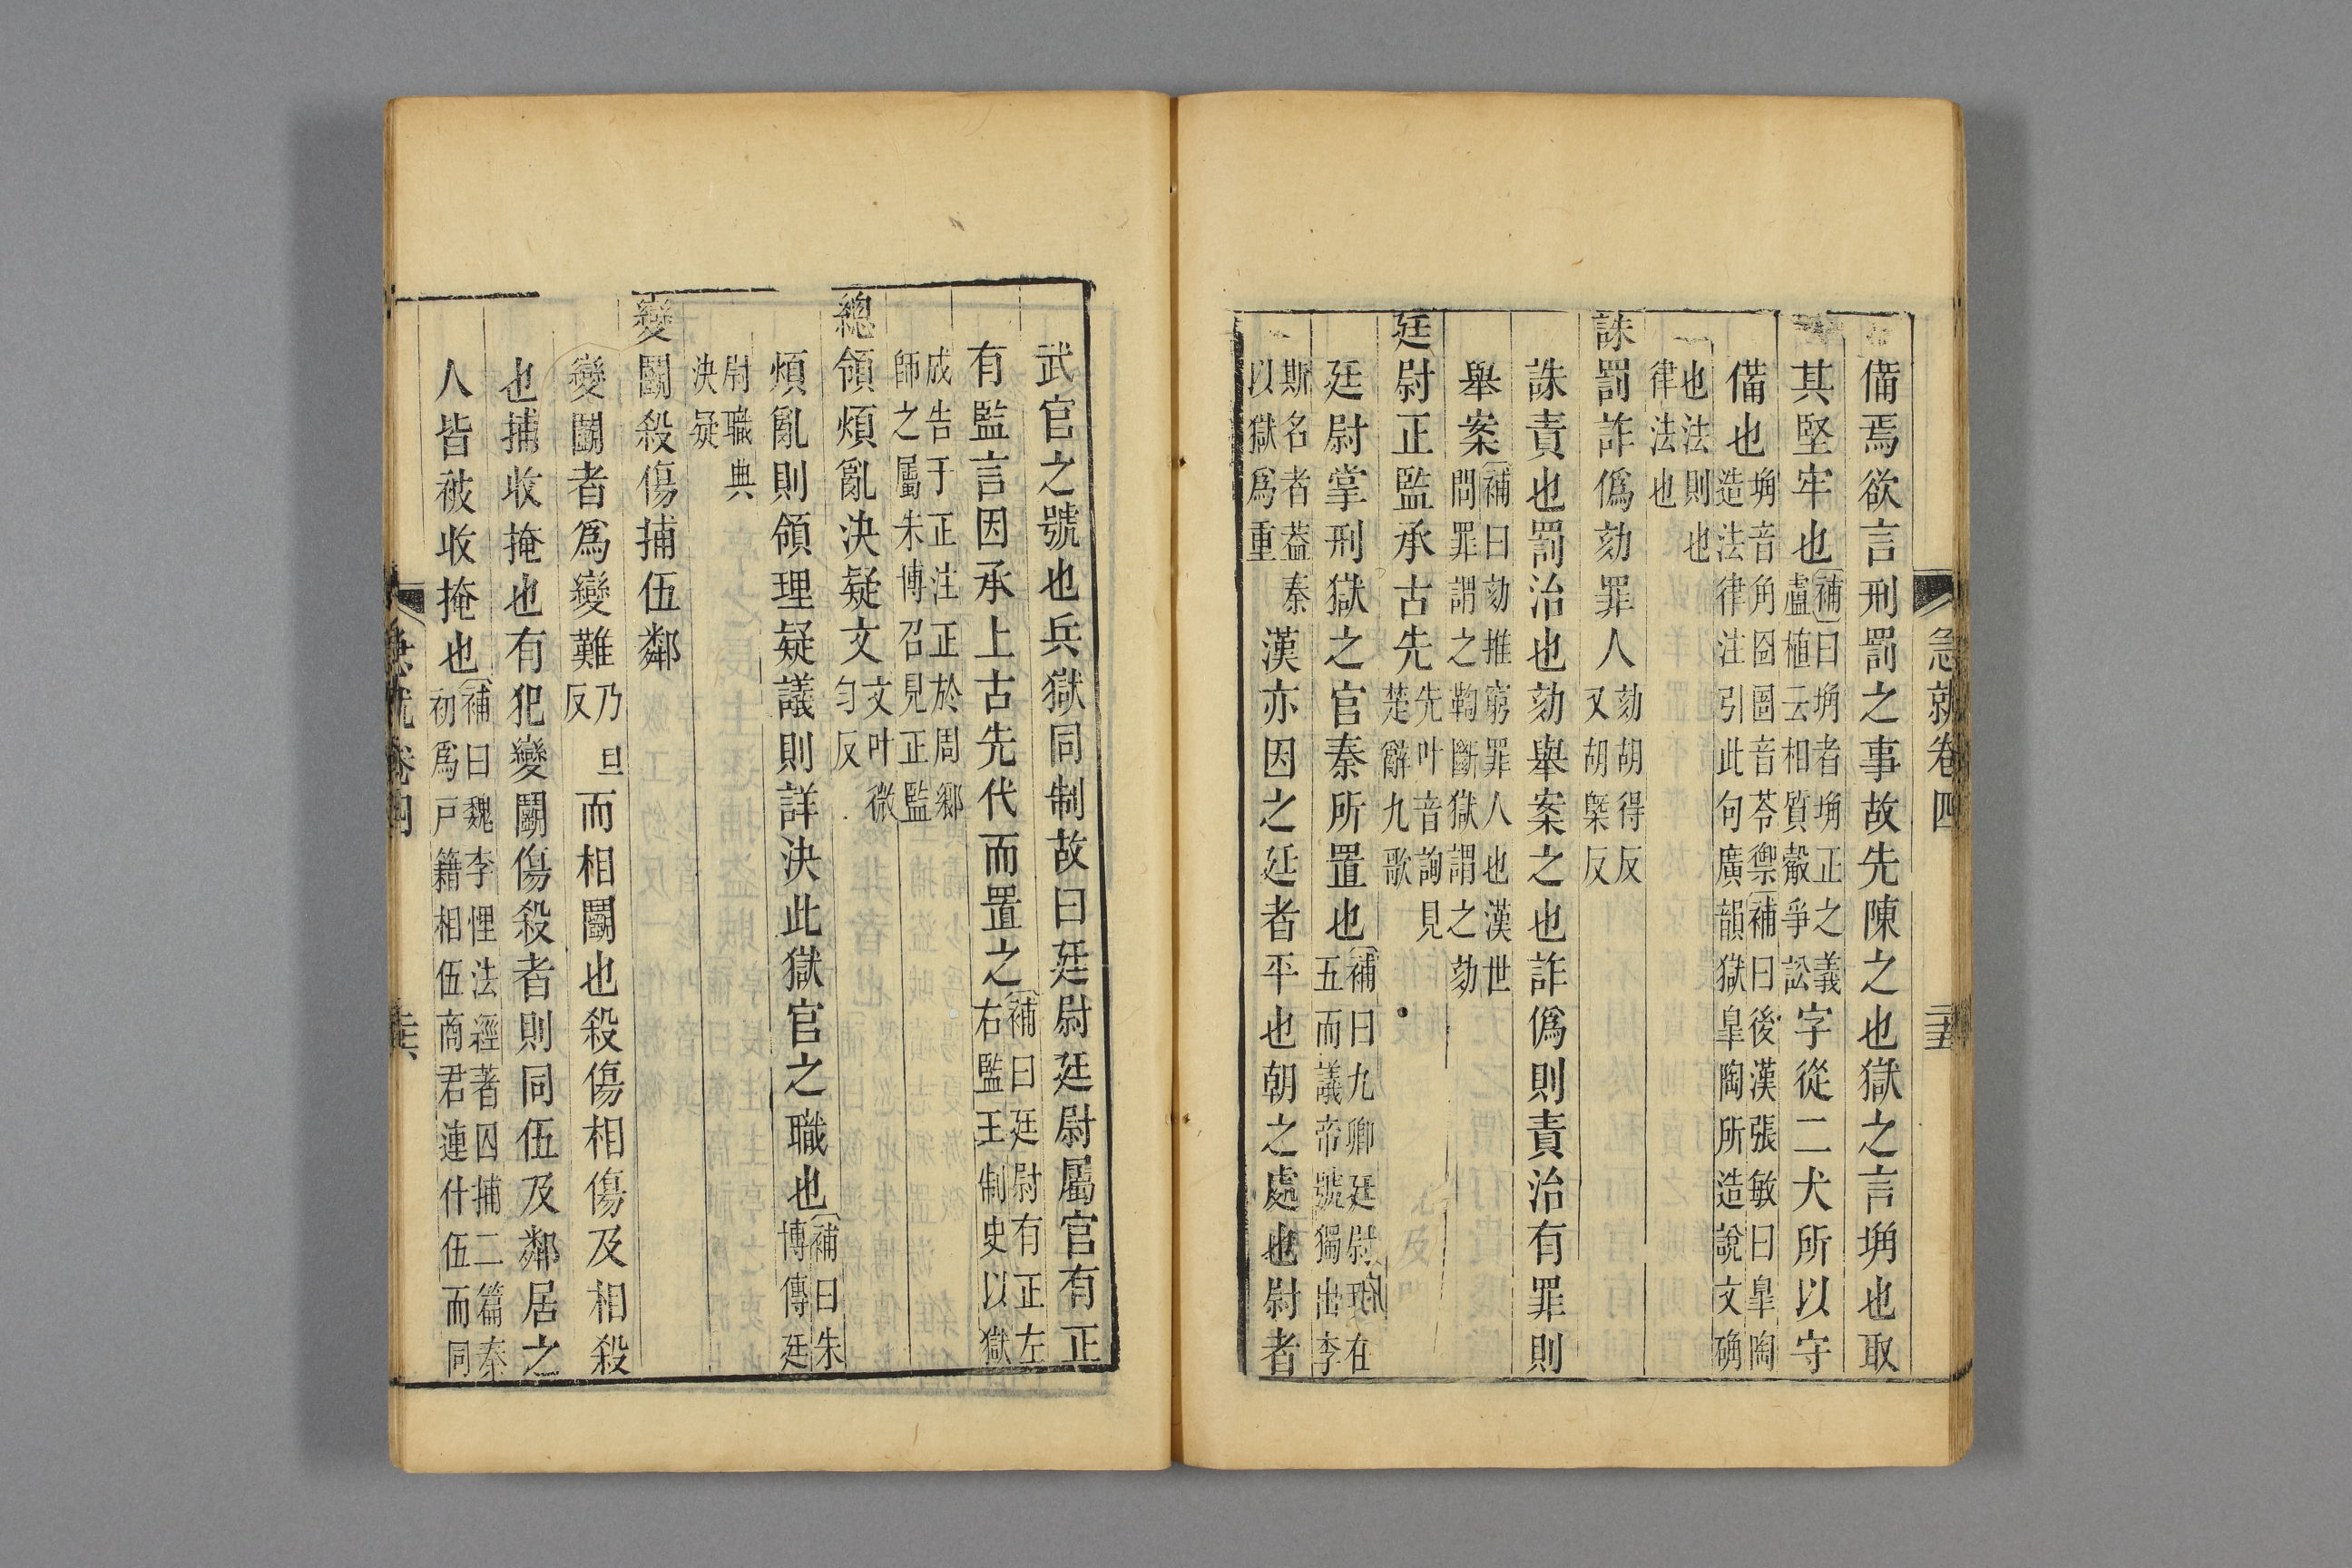 急就卷四
二十五
備焉欲言刑罰之事故先陳之也獄之言埆也取
其堅牢也補曰埆者埆正之義盧植云相質觳爭訟字從二犬所以守
備也埆音角囹圄音苓禦補曰後漢張敏曰皐陶造法律注引此句廣韻獄皐陶所造說文确
也法則也律法也
誅罰詐僞劾罪人劾胡得反又胡槩反
誅責也罰治也劾舉案之也詐僞則責治有罪則
舉案補曰劾推窮罪人也漢世問罪謂之鞫斷獄謂之劾
廷尉正監承古先先叶音詢見楚辭九歌
廷尉掌刑獄之官秦所置也補曰九卿廷尉在五而議帝號獨出李
斯名者蓋秦以獄爲重漢亦因之廷者平也朝之處也尉者
武官之號也兵獄同制故曰廷尉廷尉屬官有正
有監言因承上古先代而置之補曰廷尉有正左右監王制史以獄
成告于正注正於周鄉師之屬朱博召見正監
總領煩亂決疑文文叶微勻反
煩亂則領理疑議則詳決此獄官之職也補曰朱博傳廷
尉職典決疑
變鬭殺傷捕伍鄰
變鬭者爲變難乃旦反而相鬭也殺傷相傷及相殺
也捕收掩也有犯變鬭傷殺者則同伍及鄰居之
人皆被收掩也補曰魏李悝法經著囚捕二篇秦初爲戸籍相伍商君連什伍而同
急就卷四
二十六